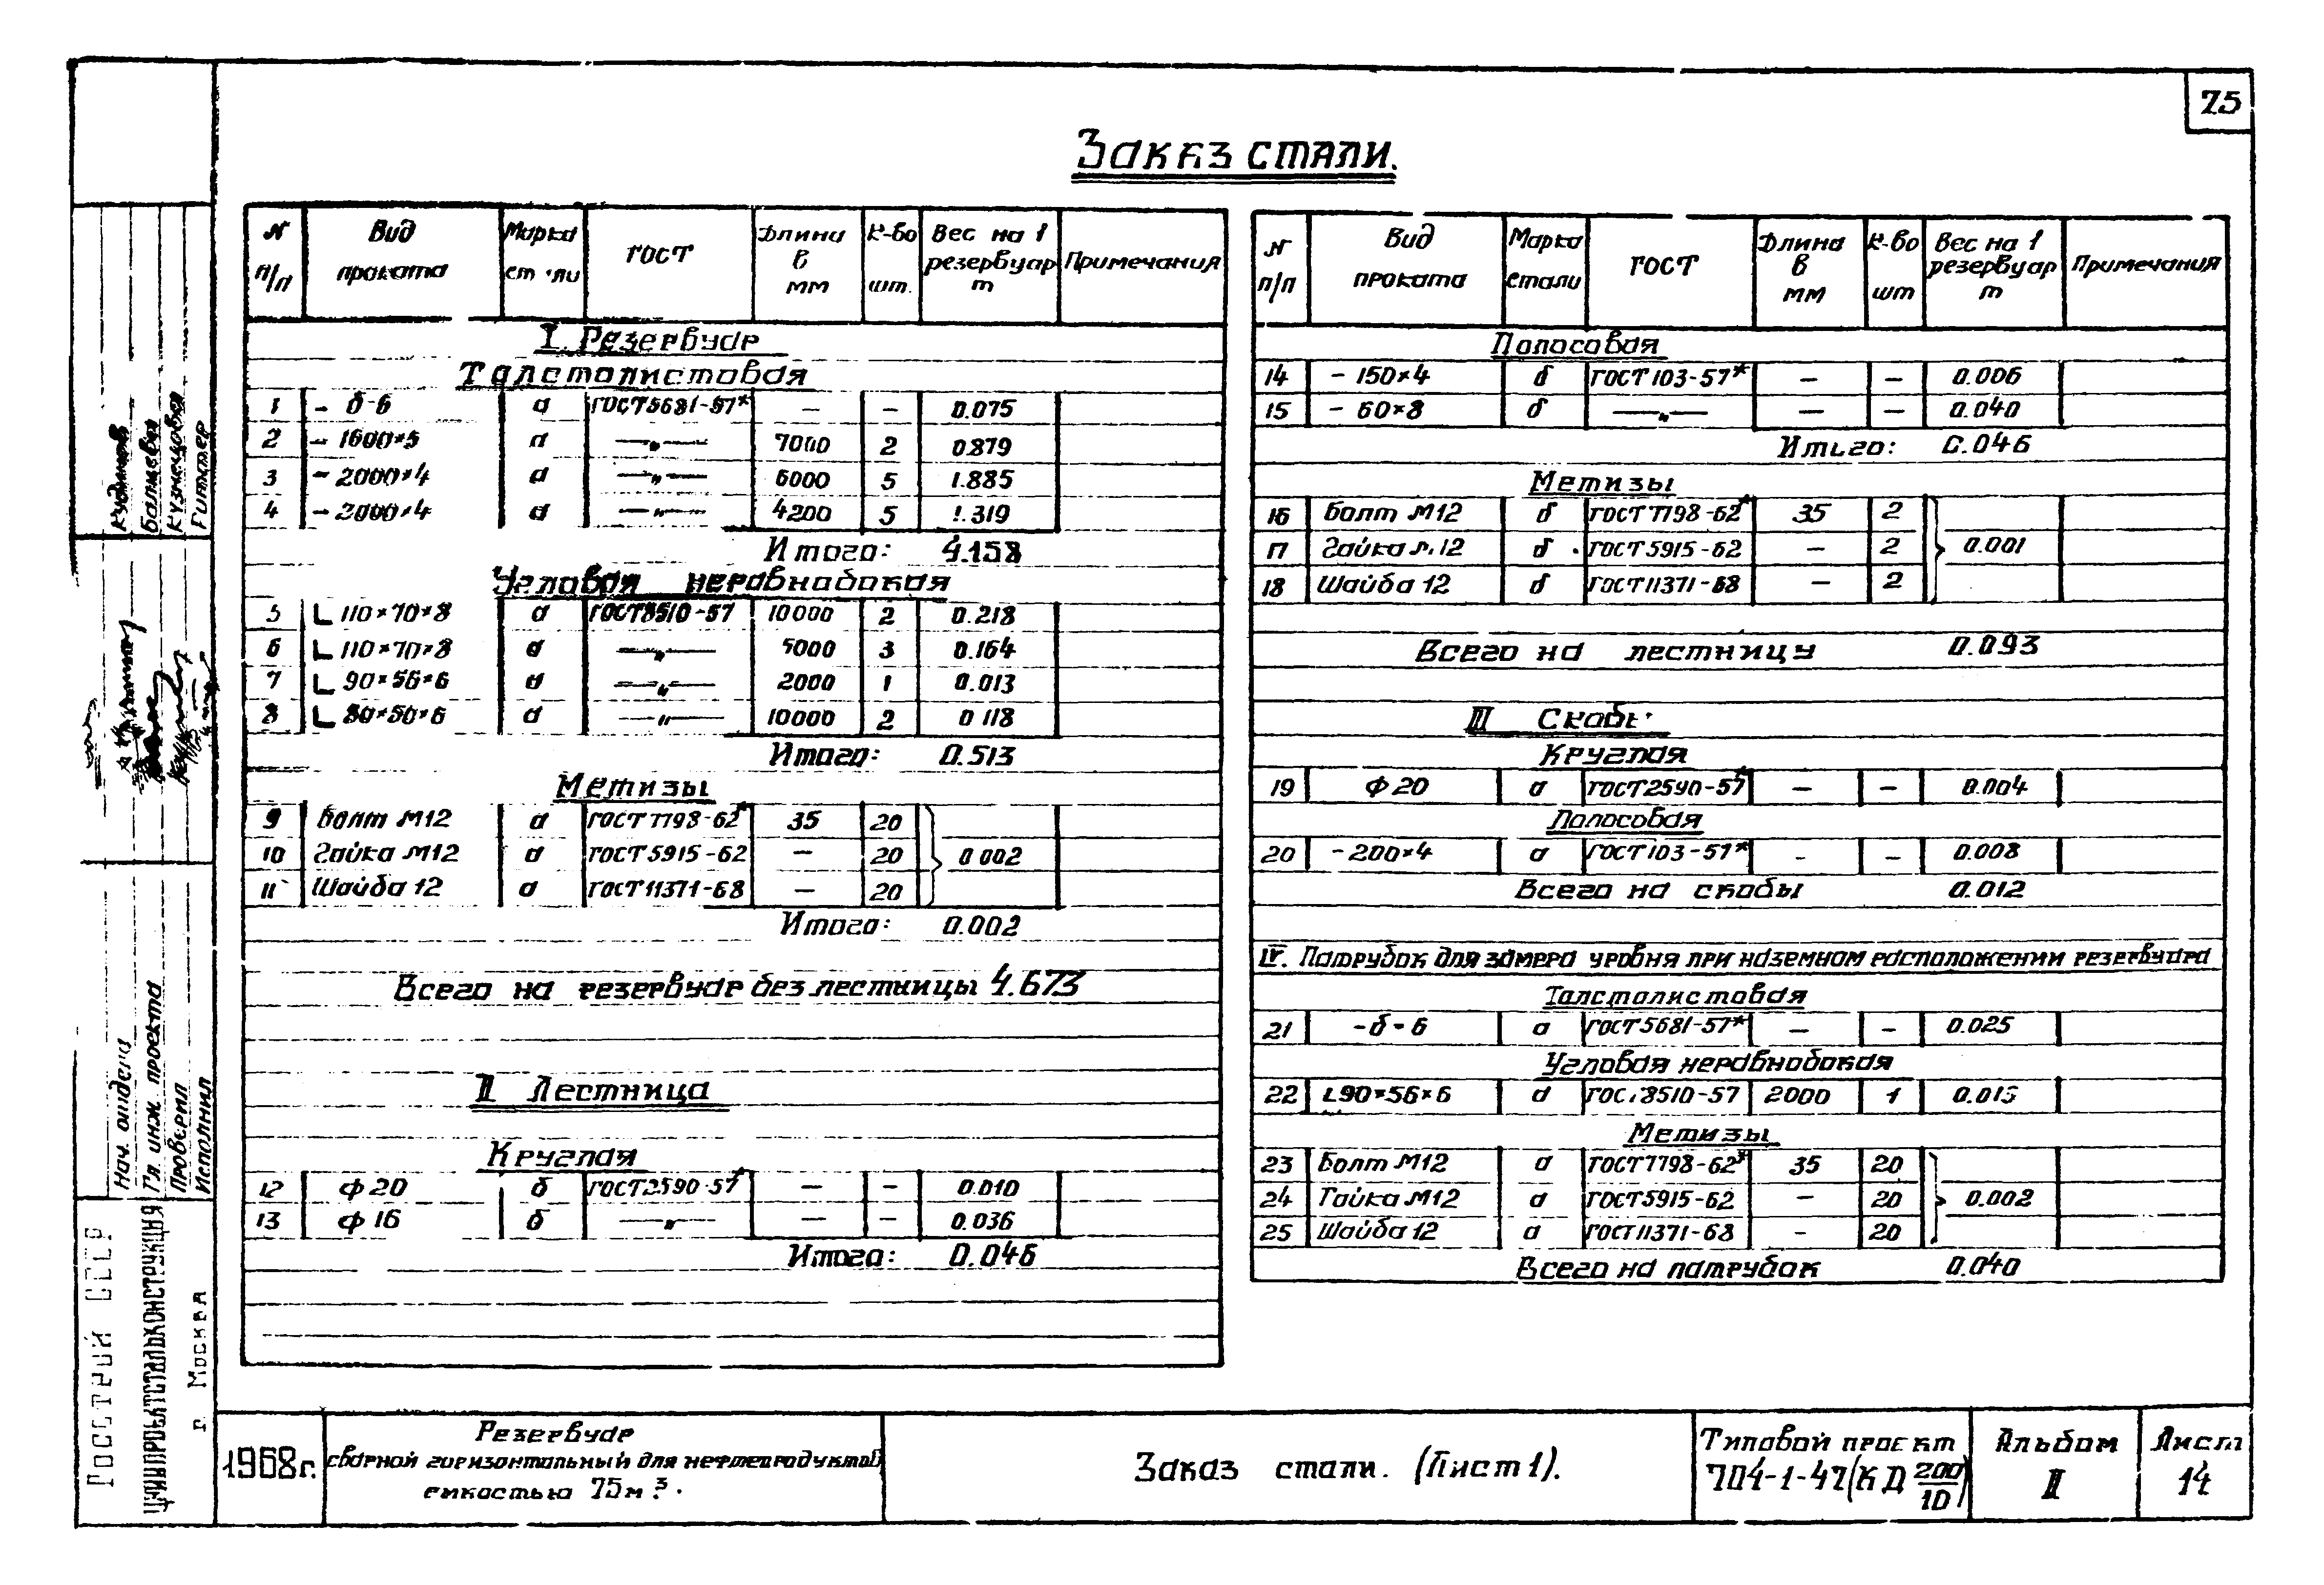 75
Заказ стали.
N п/п Вид проката Марка стали ГОСТ Длина в мм К-во шт. Вес на 1 резервуар т Примечания
I. Резервуар
Талстолистовая
1 - δ-6 а ГОСТ5681-57* — — 0.075
2 - 1600×5 а —"— 7000 2 0.879
3 - 2000×4 а —"— 6000 5 1.885
4 - 2000×4 а —"— 4200 5 1.319
Итого: 4.158
Угловая неравнобокая
5 L 110×70×8 а ГОСТ8510-57 10000 2 0.218
6 L 110×70×8 а —"— 5000 3 0.164
7 L 90×56×6 а —"— 2000 1 0.013
8 L 80×50×6 а —"— 10000 2 0 118
Итого: 0.513
Метизы
9 Болт М12 а ГОСТ 7798-62* 35 20
10 Гайка М12 а ГОСТ 5915-62 — 20 0 002
11 Шайба 12 а ГОСТ 11371-68 — 20
Итого: 0.002
Всего на резервуар без лестницы 4.673
II Лестница
Круглая
12 ф 20 б ГОСТ2590-57* — — 0.010
13 ф 16 б —"— — — 0.036
Итого: 0.046
N п/п Вид проката Марка стали ГОСТ Длина в мм К-во шт Вес на 1 резервуар т Примечания
Полосовая
14 - 150×4 б ГОСТ 103-57* — — 0.006
15 - 60×8 б —"— — — 0.040
Итого: 0.046
Метизы
16 Болт М12 б ГОСТ 7798-62* 35 2
17 Гайка М12 б ГОСТ 5915-62 — 2 0.001
18 Шайба 12 б ГОСТ 11371-68 — 2
Всего на лестницу 0.093
III Скобы
Круглая
19 ф 20 а ГОСТ2590-57* — — 0.004
Полосовая
20 - 200×4 а ГОСТ103-57* - — 0.008
Всего на скобы 0.012
IV. Патрубок для замера уровня при наземном расположении резервуара
Талстолистовая
21 - δ - 6 а ГОСТ5681-57* — - 0.025
Угловая неравнобокая
22 L90×56×6 а ГОСТ8510-57 2000 1 0.013
Метизы
23 Болт М12 а ГОСТ7798-62* 35 20
24 Гайка М12 а ГОСТ5915-62 — 20 0.002
25 Шайба 12 а ГОСТ11371-68 - 20
Всего на патрубок 0.040
Кудишов
Балиева
Кузнецова
Риттер
Нач. отдела
Гл. инж. проекта
Проверил
Исполнил
Госстрой СССР
ЦНИИПРОЕКТСТАЛЬКОНСТРУКЦИЯ
г. Москва
1968г.
Резервуар
сварной горизонтальный для нефтепродуктов
емкостью 75м³.
Заказ стали. (Лист 1).
Типовой проект
704-1-47(КД 200/10)
Альбом
II
Лист
14